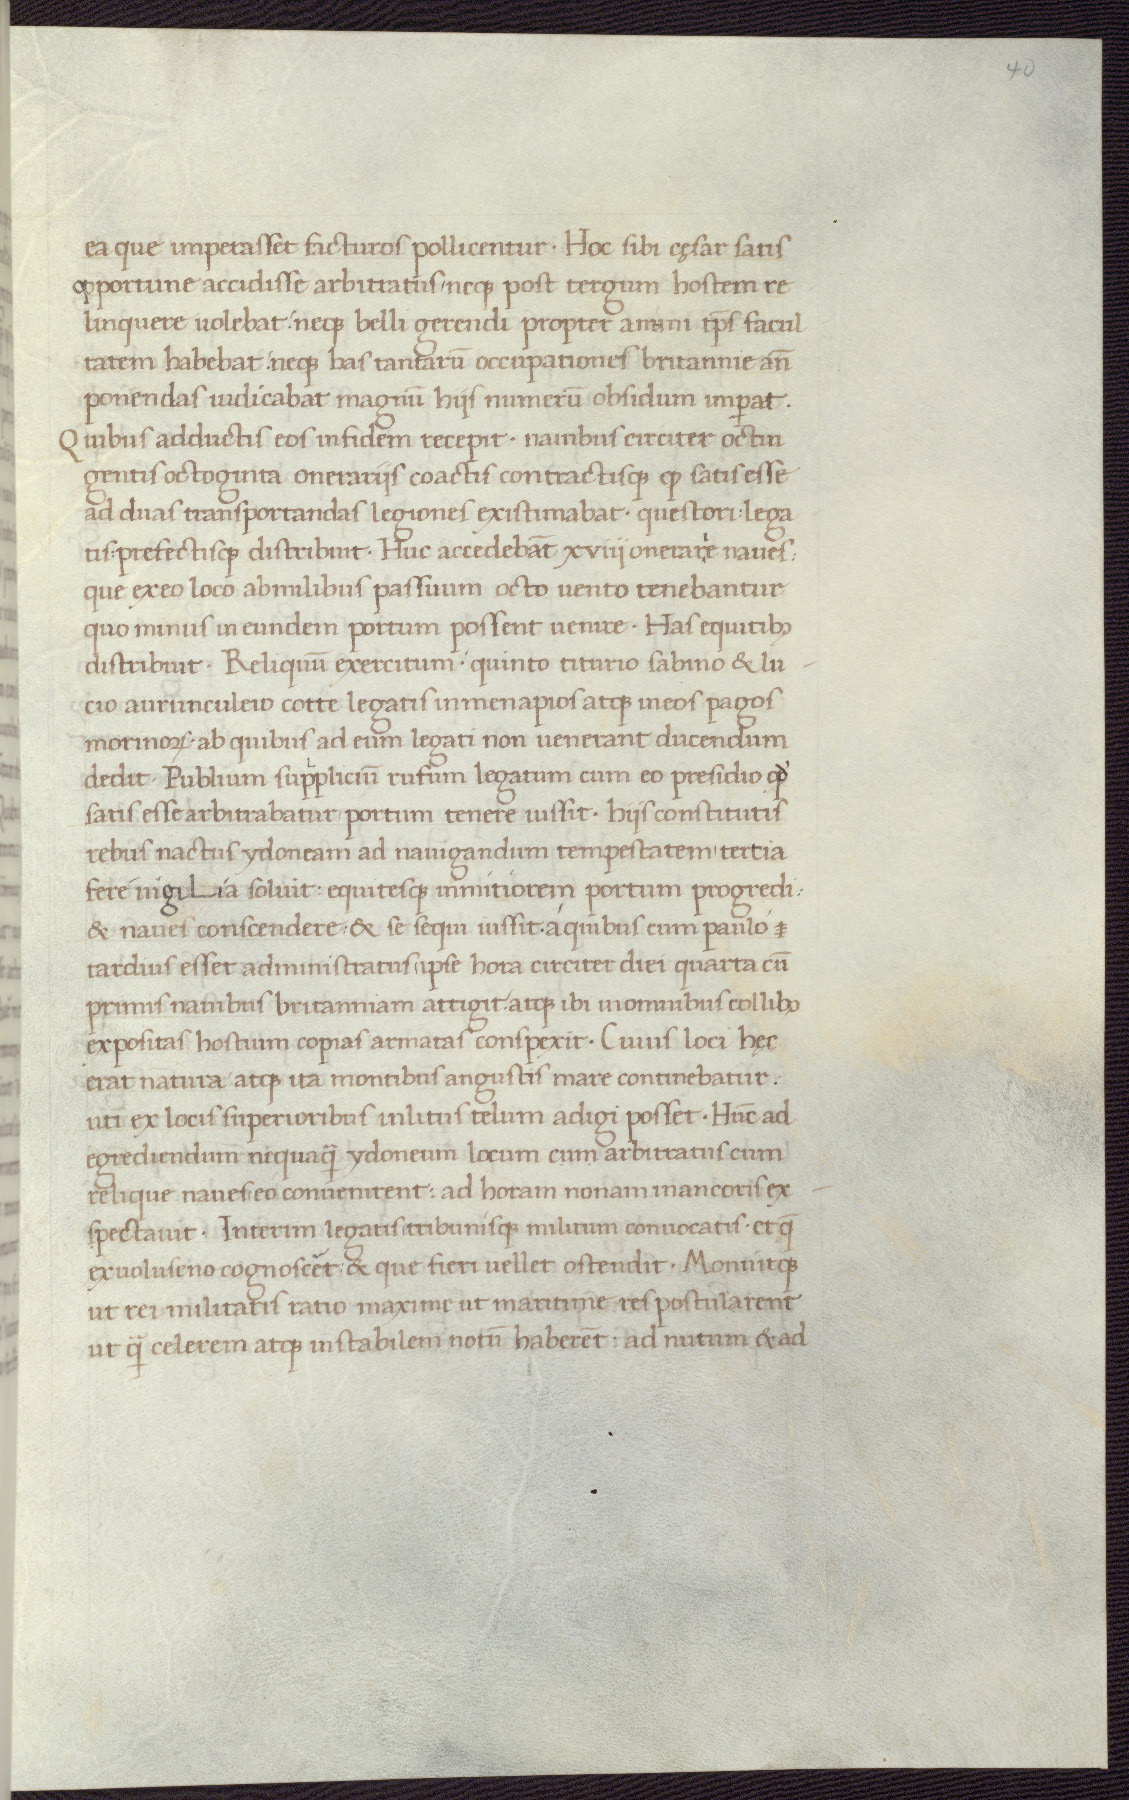 40
ea que imperasset facturos pollicentur · Hoc sibi cęsar satis
opportune accidisse arbitratus, neq; post tergum hostem re
linquere uolebat: neq; belli gerendi propter anni tp̄s facul
tatem habebat: neq; has tantarū occupationes britannie an̄
ponendas iudicabat magnū hijs numerū obsidum imꝑat.
Quibus adductis eos infidem recepit · nauibus circiter octin
gentis octoginta onerarijs coactis contractisq; ꝙ satis esse
ad duas transportandas legiones existimabat · questori: lega
tis: prefectisq; distribuit · Huc accedebāt xviij onerarie naues:
que exeo loco abmilibus passuum octo uento tenebantur
quo minus in eundem portum possent uenire · Has equitibꝰ
distribuit · Reliquū exercitum: quinto titurio sabino & lu
cio aurunculeio cotte legatis inmenapios atq; ineos pagos
morinoꝝ · ab quibus ad eum legati non uenerant ducendum
dedit · Publium suppliciū rufum legatum cum eo presidio ꝙ
satis esse arbitrabatur portum tenere iussit · hijs constitutis
rebus nactus ydoneam ad nauigandum tempestatem, tertia
fere uigiLia soluit: equitesq; inulteriorem portum progredi:
& naues conscendere: & se sequi iussit · á quibus cum paulo
tardius esset administratus, ipse hora circiter diei quarta cū
primis nauibus britanniam attigit: atq; ibi inomnibus collibꝰ
expositas hostium copias armatas conspexit · Cuius loci hęc
erat natura atq; ita montibus angustis mare continebatur.
uti ex locis superioribus inlitus telum adigi posset · Hūc ad
egrediendum nequaq̄ ydoneum locum cum arbitratus cum
relique naues eo conuenirent: ad horam nonam inancoris ex
spectauit · Interim legatis tribunisq; militum conuocatis · et q̄
exuoluseno cognoscēt: & que fieri uellet ostendit · Monuitq;
ut rei militaris ratio maxime ut maritime res postularent
ut q̄ celerem atq; instabilem motū haberēt: ad nutum & ad